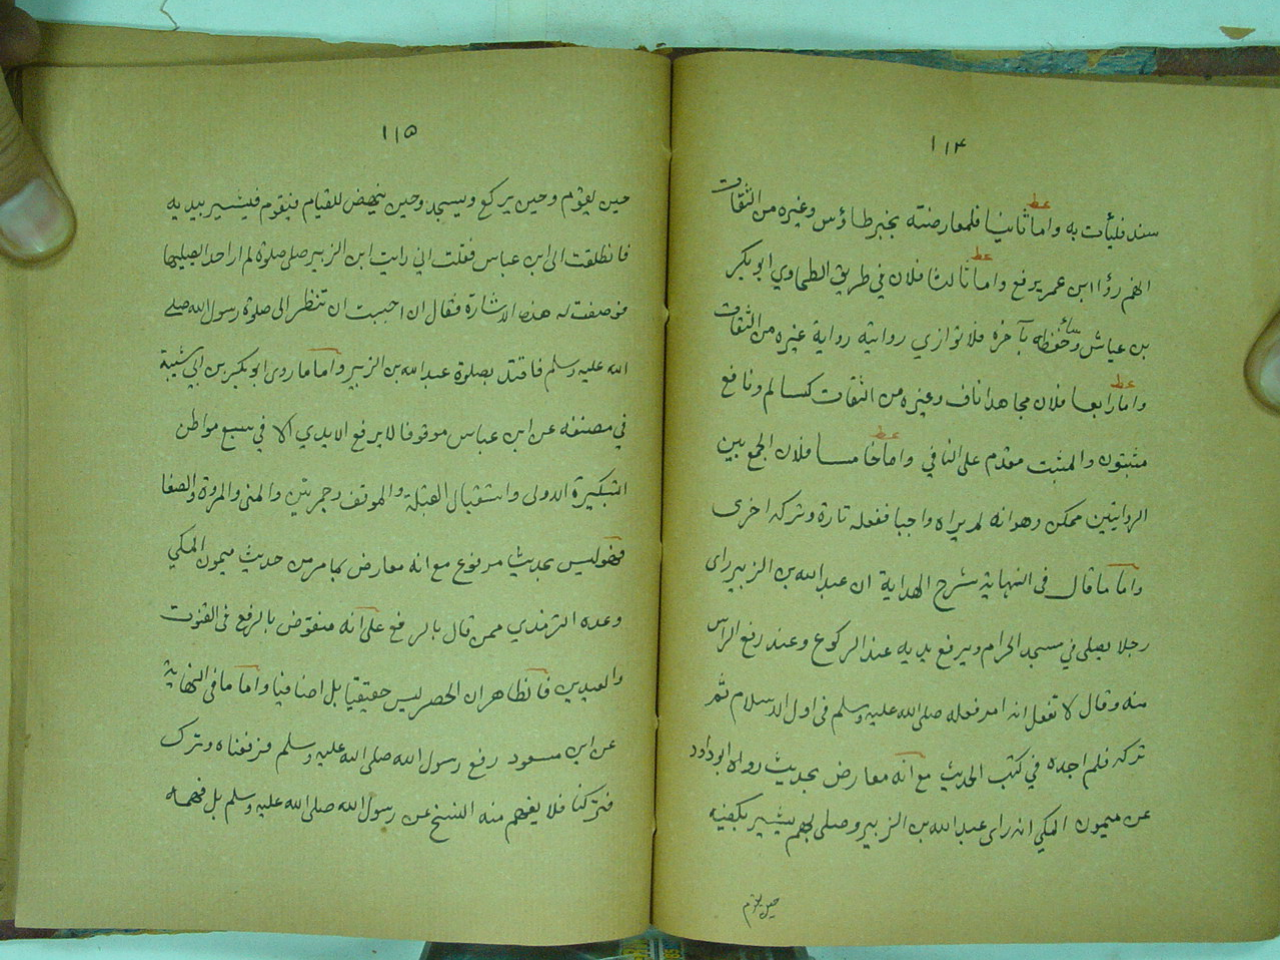 ١١٤
سند فليأت به واما ثانيا فلمعارضته بخبر طاؤس وغيره من الثقات
انهم رؤا ابن عمر يرفع واما ثالثا فلان في طريق الطحاوي ابو بكر
بن عياش وحفظه بآخره فلا توازي روايته رواية غيره من الثقات
واما رابعا فلان مجاهدا ناف وغيره من الثقات كسالم ونافع
مثبتون والمثبت مقدم على النافي واما خامسا فلان الجمع بين
الروايتين ممكن وهو انه لم يراه واجبا ففعله تارة وتركه اخرى
واما ما قال في النهاية شرح الهداية ان عبد الله بن الزبير راى
رجلا يصلي في مسجد الحرام ويرفع يديه عند الركوع وعند رفع الراس
منه وقال لا تفعل انه امر فعله صلى الله عليه وسلم في اول الاسلام ثم
تركه فلم اجده في كتب الحديث مع انه معارض بحديث رواه ابوداود
عن ميمون المكي انه راى عبد الله بن الزبير وصلى بهم يشير بكفيه
حين يقوم
١١٥
حين يقوم وحين يركع ويسجد وحين ينهض للقيام فيقوم فيشير بيديه
فانطلقت الى ابن عباس فقلت اني رايت ابن الزبير صلى صلوة لم ار احدا يصليها
فوصفت له هذه الاشارة فقال ان احببت ان تنظر الى صلوة رسول الله صلى
الله عليه وسلم فاقتد بصلوة عبد الله بن الزبير واما ما روى ابو بكر بن ابي شيبة
في مصنفه عن ابن عباس موقوفا لا يرفع الايدي الا في سبع مواطن
التكبيرة الاولى واستقبال القبلة والموقف وجمرتين والمنى والمروة والصفا
فهو ليس بحديث مرفوع مع انه معارض بما مر من حديث ميمون المكي
وعده الترمذي ممن قال بالرفع على انه منقوض بالرفع في القنوت
والعيدين فالظاهر ان الحصر ليس حقيقيا بل اضافيا واما ما في النهاية
عن ابن مسعود رفع رسول الله صلى الله عليه وسلم فرفعناه وترك
فتركنا فلا يفهم منه النسخ عن رسول الله صلى الله عليه وسلم بل فهمه